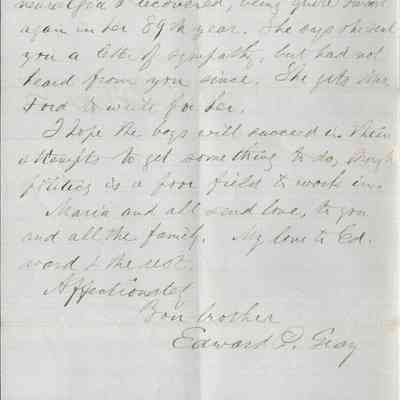 neuralgia & recovered, being quite smart
again in her 89th year. She says she sent
you a letter of sympathy, but had not
heard from you since. She gets Miss
Ford to write for her.
I hope the boys will succeed in their
attempts to get something to do, though
politics is a poor field to work in.
Maria and all send love, to you
and all the family. My love to Ed-
ward & the rest.
Affectionately
Your brother
Edward D. Gray